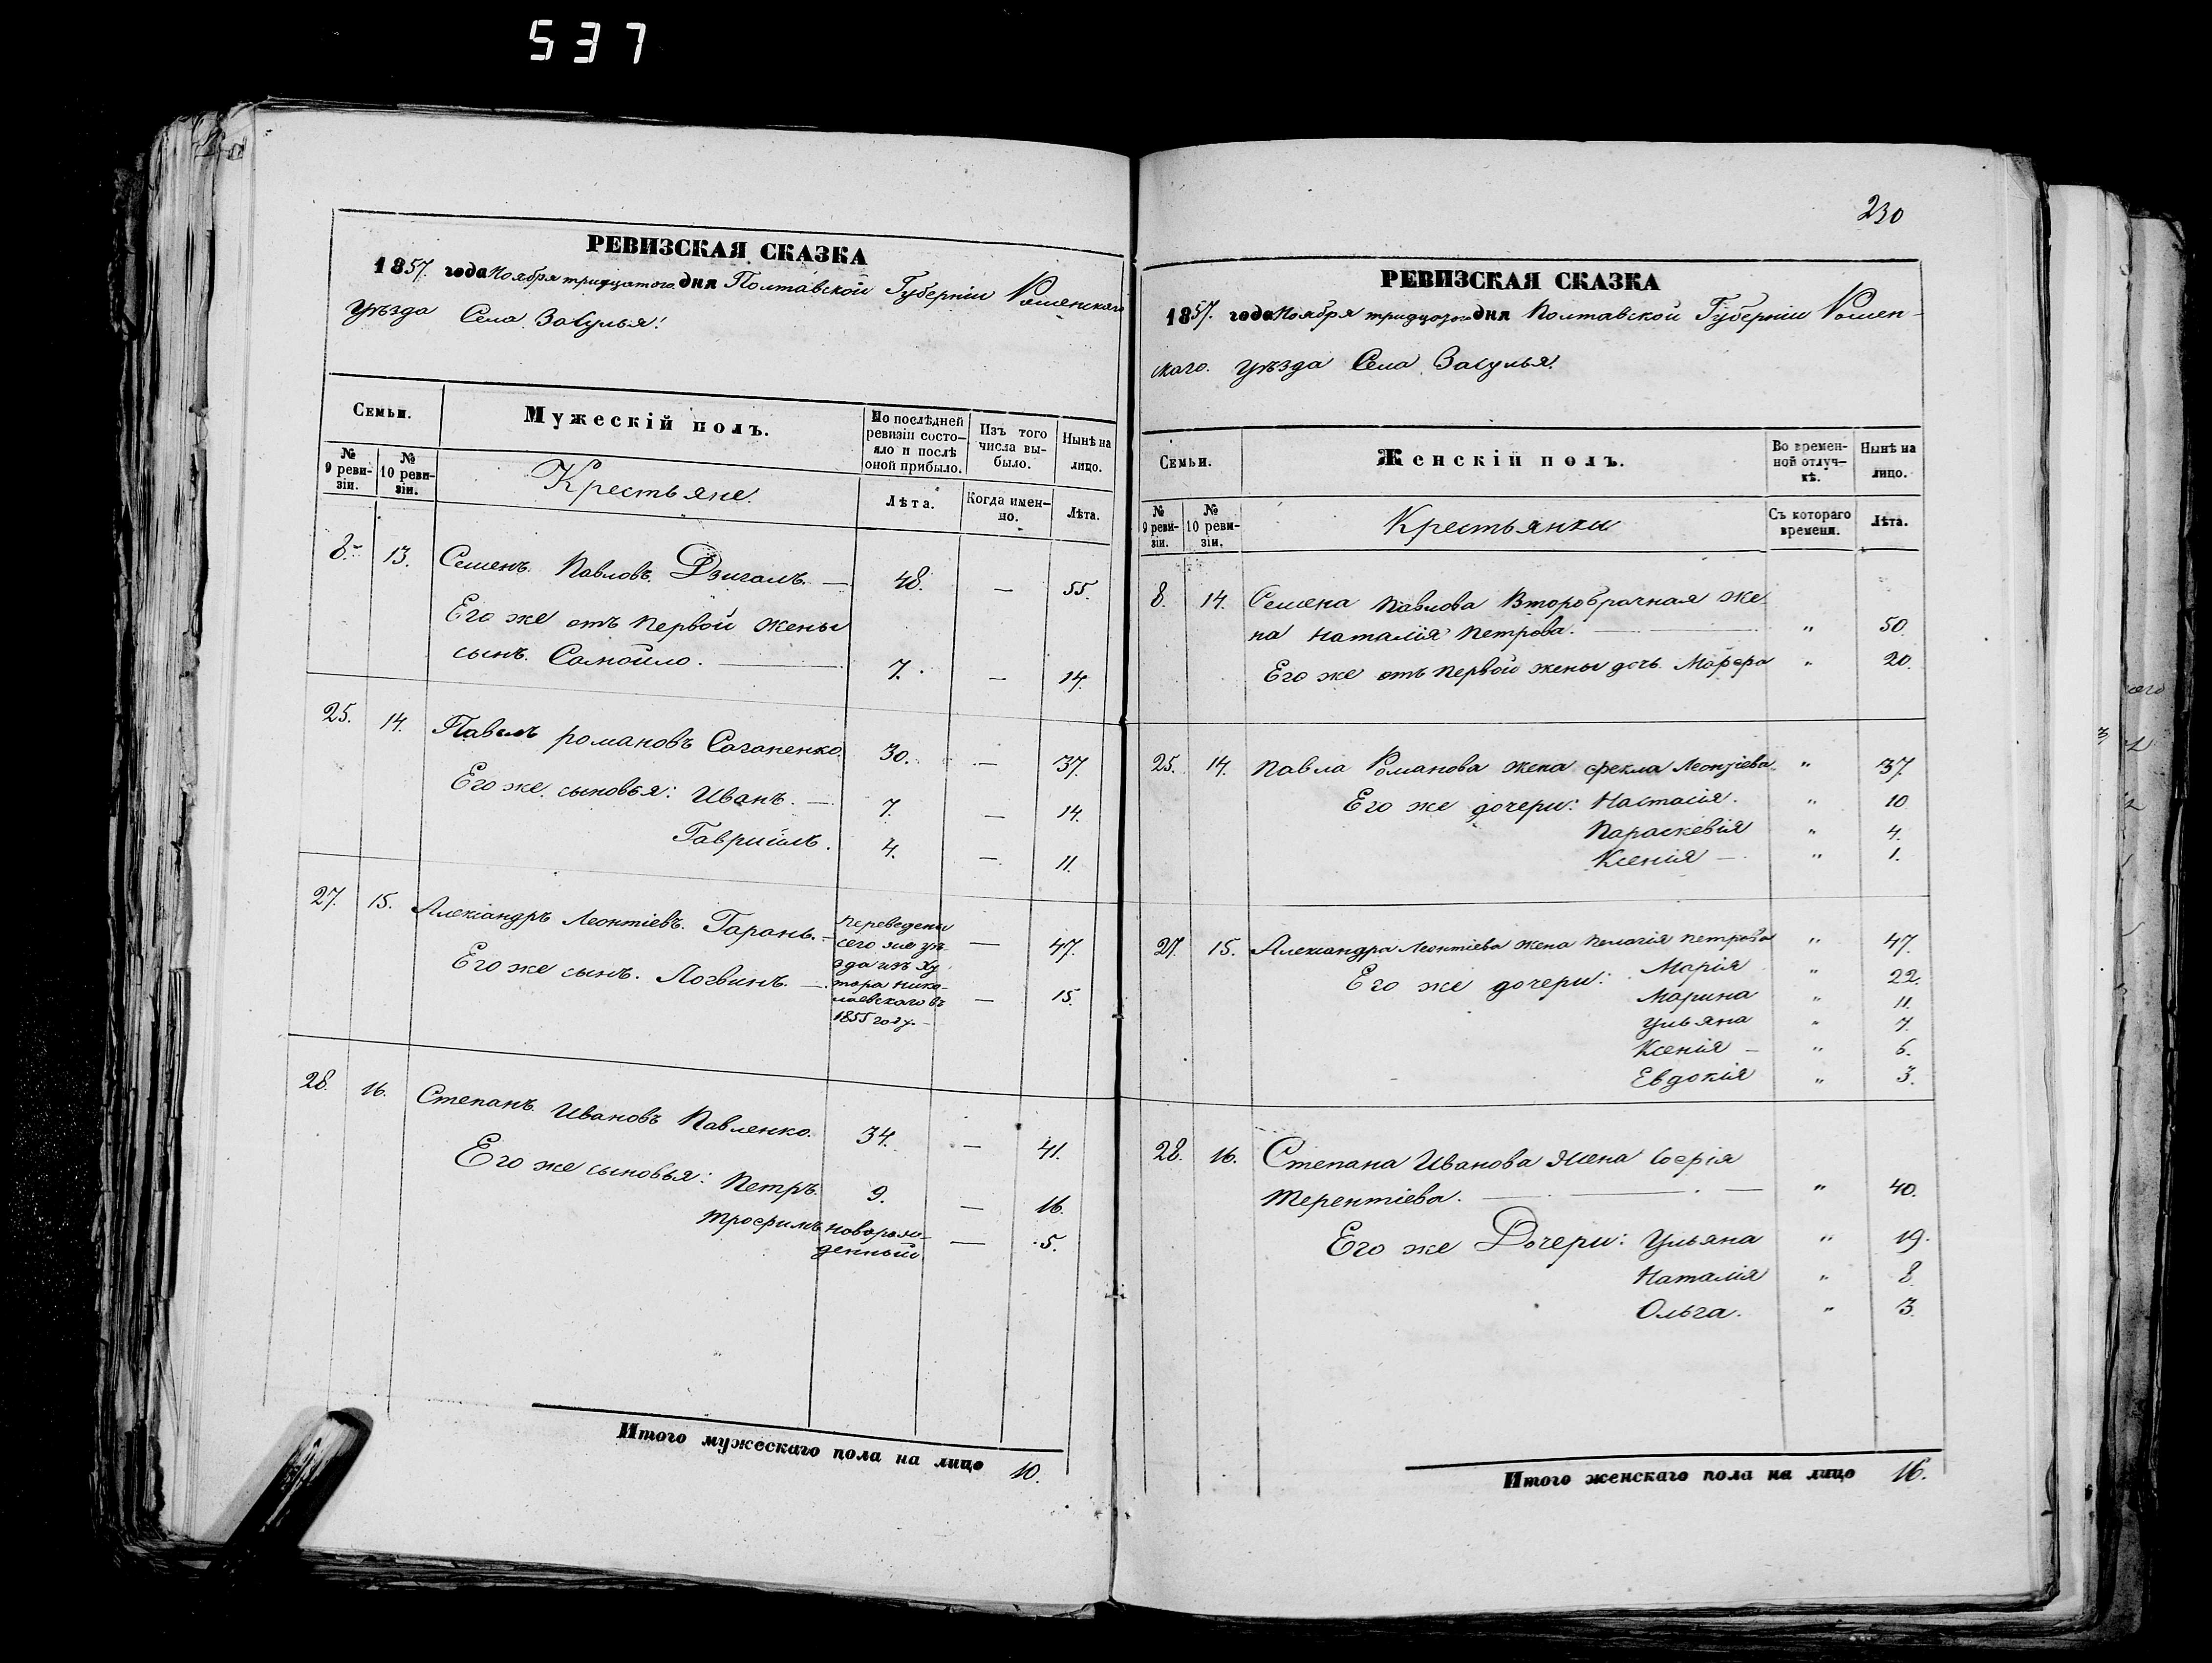 537
РЕВИЗСКАЯ СКАЗКА
1857. года Ноября тридцатого дня Полтавской Губерніи Роменскаго
уѣзда Села Засулья.
Семьи.
Мужескій полъ.
По послѣдней ревизіи состояло и послѣ оной прибыло.
Изъ того числа выбыло.
Нынѣ на лицо.
№ 9 ревизіи.
№ 10 ревизіи.
Крестьяне.
Лѣта.
Когда именно.
Лѣта.
8. 13. Семенъ Павловъ Дзигалъ. — 48. — 55.
Его же отъ первой жены
сынъ Самойло. — 7. — 14.
25. 14. Павелъ романовъ Саганенко. 30. — 37.
Его же сыновья: Иванъ. — 7. — 14.
Гавріилъ. 4. — 11.
27. 15. Александръ Леонтіевъ Гарань. — — 47.
Его же сынъ Логвинъ. — — 15.
Переведены
сего же уѣ-
зда изъ Ху
тора Нико-
лаевскаго въ
1855 году. —
28. 16. Степанъ Ивановъ Павленко. 34. — 41.
Его же сыновья: Петръ 9. — 16.
Трофимъ новорож- — 5.
денный
Итого мужескаго пола на лицо 10.
230
РЕВИЗСКАЯ СКАЗКА
1857. года Ноября тридцатого дня Полтавской Губерніи Ромен-
скаго. уѣзда Села Засулья.
Семьи.
Женскій полъ.
Во временной отлучкѣ.
Нынѣ на лицо.
№ 9 ревизіи.
№ 10 ревизіи.
Крестьянки
Съ котораго времени.
Лѣта.
8. 14. Семена Павлова Второбрачная же-
на Наталія Петрова. — " 50.
Его же отъ первой жены дочь Марфа " 20.
25. 14. Павла Романова жена Фекла Леонтіева. " 37.
Его же дочери: Настасія. " 10
Параскевія " 4.
Ксенія — " 1.
27. 15. Александра Леонтіева жена Пелагія Петрова " 47.
Его же дочери: Марія " 22.
Марина " 11.
Ульяна " 7.
Ксенія — " 6.
Евдокія " 3.
28. 16. Степана Иванова жена Софія
Терентіева. — " 40.
Его же Дочери: Ульяна " 19.
Наталія " 8.
Ольга. " 3.
Итого женскаго пола на лицо 16.